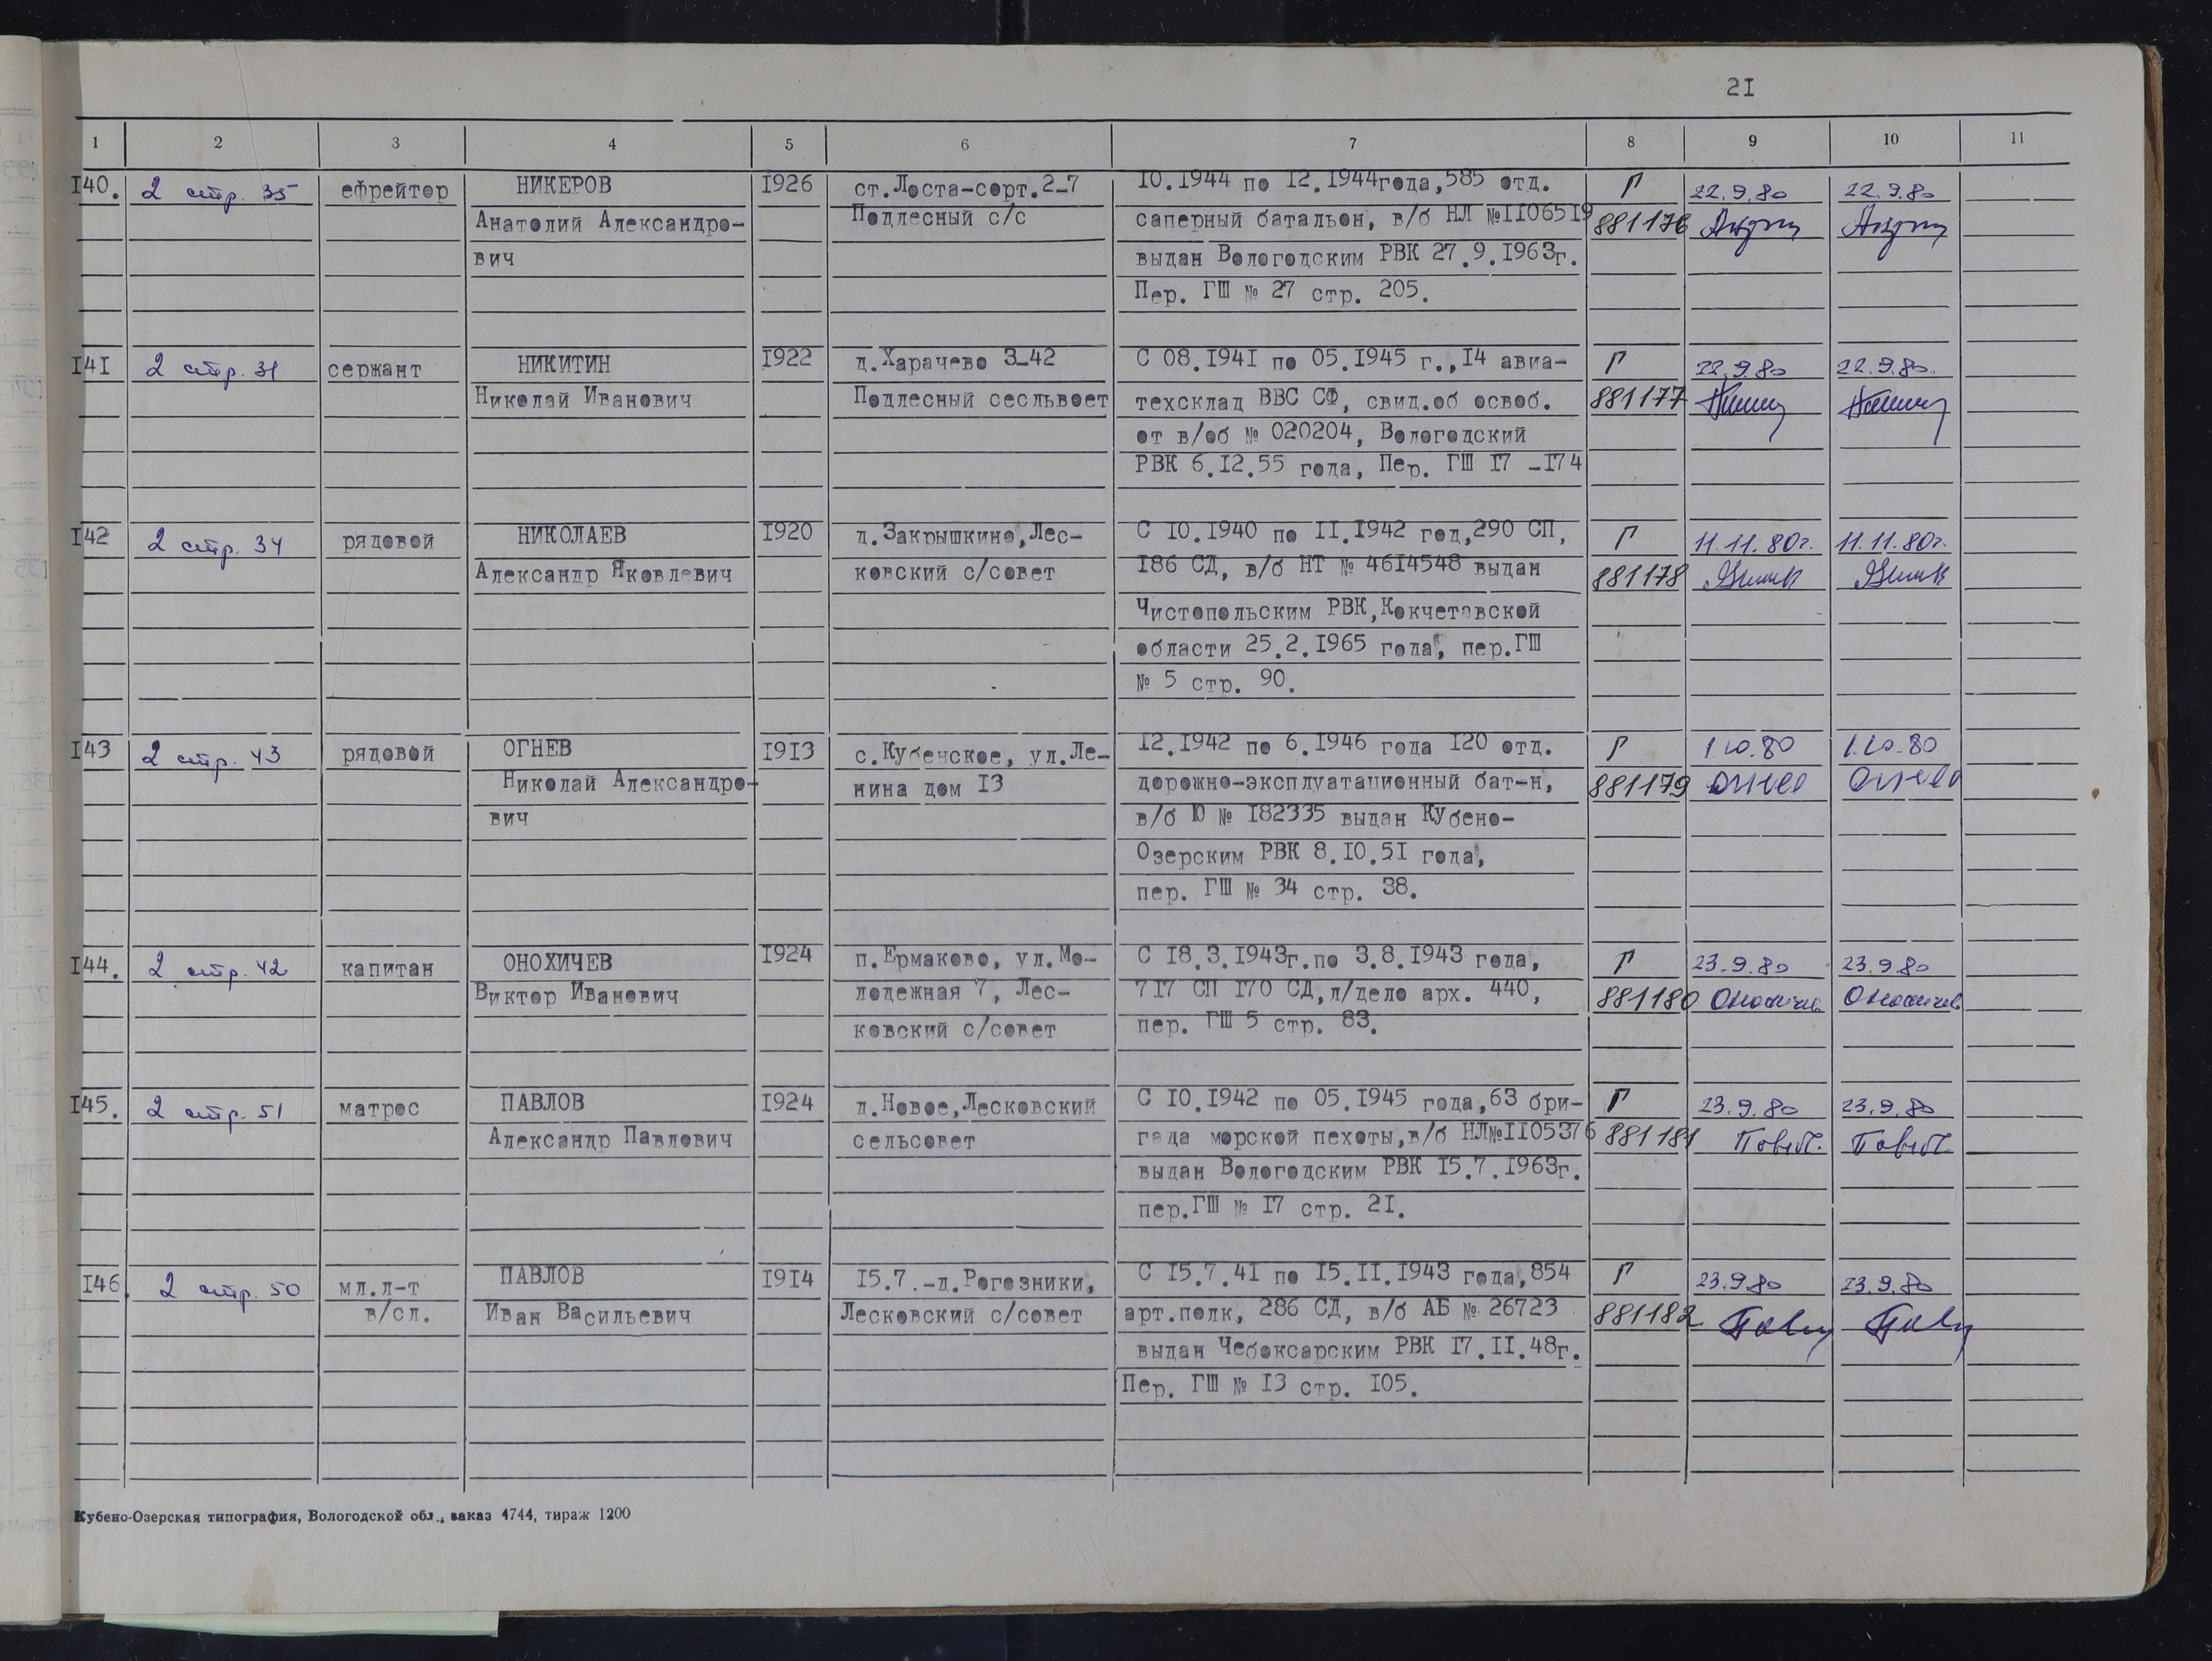 21
1 2 3 4 5 6 7 8 9 10 11
140. 2 стр. 35 ефрейтор НИКЕРОВ 1926 ст.Лоста-сорт.2-7 10.1944 по 12.1944года,585 отд. Г 22.9.80 22.9.80
Анатолий Александро- Подлесный с/с саперный батальон, в/б НЛ №1106519 881176
вич выдан Вологодским РВК 27.9.1963г.
Пер. ГШ № 27 стр. 205.
141 2 стр. 31 сержант НИКИТИН 1922 д.Харачево 3-42 С 08.1941 по 05.1945 г.,14 авиа- Г 22.9.80 22.9.80.
Николай Иванович Подлесный сесльвоет техсклад ВВС СФ, свид.об освоб. 881177
от в/об № 020204, Вологодский
РВК 6.12.55 года, Пер. ГШ 17 -174
142 2 стр. 34 рядовой НИКОЛАЕВ 1920 д.Закрышкино,Лес- С 10.1940 по 11.1942 год,290 СП, Г 11.11.80г. 11.11.80г.
Александр Яковлевич ковский с/совет 186 СД, в/б НТ № 4614548 выдан 881178
Чистопольским РВК,Кокчетавской
области 25.2.1965 года, пер.ГШ
№ 5 стр. 90.
143 2 стр. 43 рядовой ОГНЕВ 1913 с.Кубенское, ул.Ле- 12.1942 по 6.1946 года 120 отд. Г 1.10.80 1.10.80
Николай Александро- нина дом 13 дорожно-эксплуатационный бат-н, 881179
вич в/б Ю № 182335 выдан Кубено-
Озерским РВК 8.10.51 года,
пер. ГШ № 34 стр. 38.
144. 2 стр. 42 капитан ОНОХИЧЕВ 1924 п.Ермаково, ул.Мо- С 18.3.1943г.по 3.8.1943 года, Г 23.9.80 23.9.80
Виктор Иванович лодежная 7, Лес- 717 СП 170 СД,л/дело арх. 440, 881180
ковский с/совет пер. ГШ 5 стр. 83.
145. 2 стр. 51 матрос ПАВЛОВ 1924 д.Новое,Лесковский С 10.1942 по 05.1945 года,63 бри- Г 23.9.80 23.9.80
Александр Павлович сельсовет гада морской пехоты,в/б НЛ№1105376 881181
выдан Вологодским РВК 15.7.1963г.
пер.ГШ № 17 стр. 21.
146. 2 стр. 50 мл.л-т ПАВЛОВ 1914 15.7.-д.Рогозники, С 15.7.41 по 15.11.1943 года,854 Г 23.9.80 23.9.80
в/сл. Иван Васильевич Лесковский с/совет арт.полк, 286 СД, в/б АБ № 26723 881182
выдан Чебоксарским РВК 17.11.48г.
Пер. ГШ № 13 стр. 105.
Кубено-Озерская типография, Вологодской обл., заказ 4744, тираж 1200